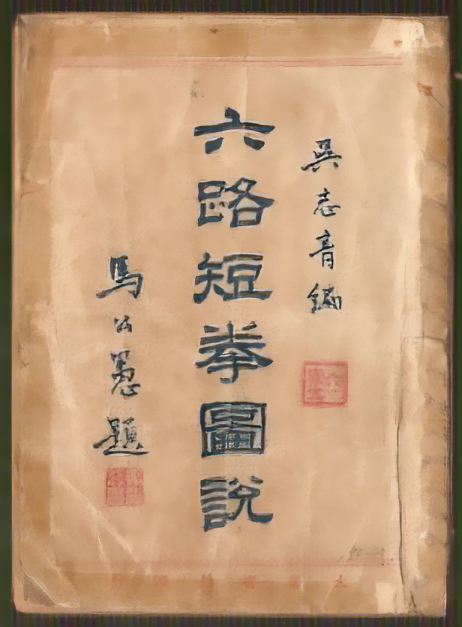 吳志青編
六路短拳圖說
馬公愚題